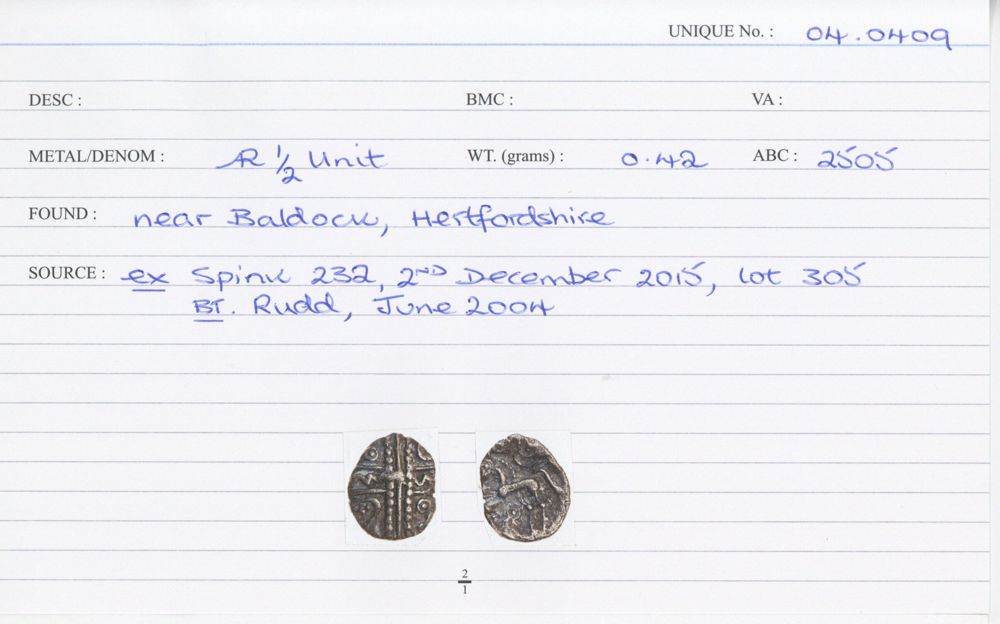 UNIQUE No. : 04.0409
DESC : BMC : VA :
METAL/DENOM : AR 1/2 Unit WT. (grams) : 0.42 ABC : 2505
FOUND : near Baldock, Hertfordshire
SOURCE : ex Spink 232, 2ND December 2015, lot 305
BT. Rudd, June 2004
2/1